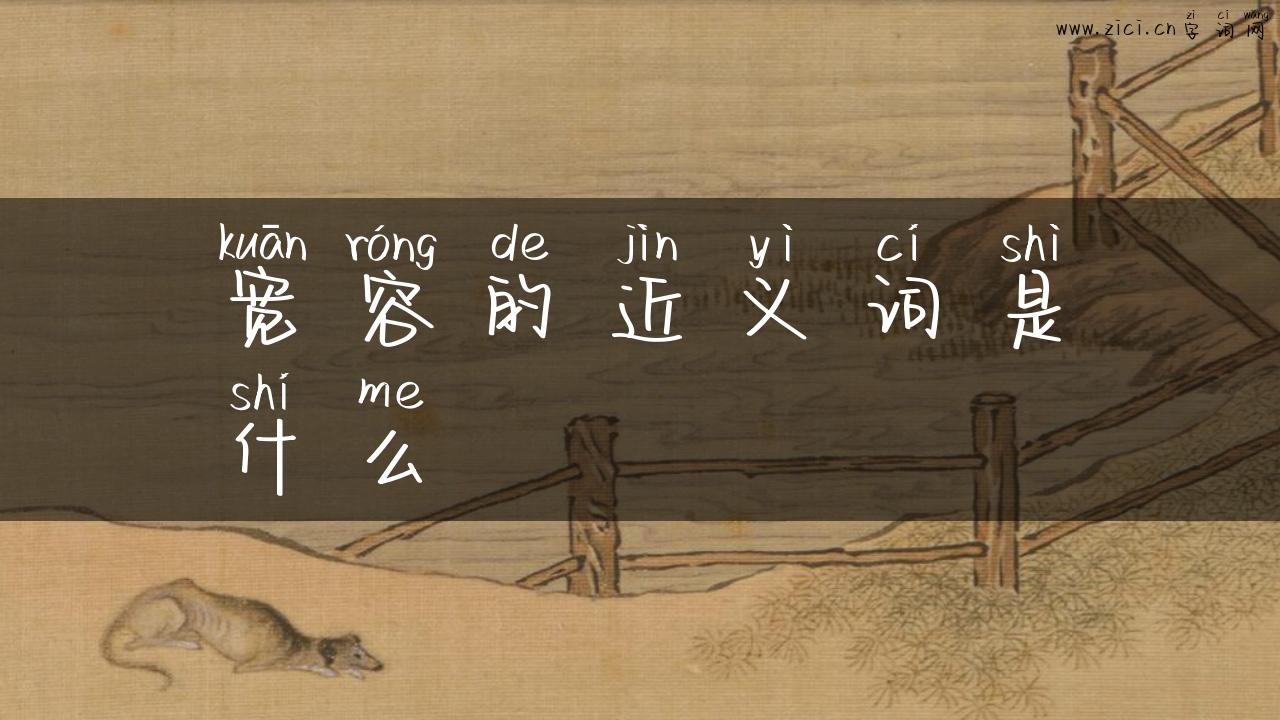 zì cí wǎng
www.zici.cn 字词网
kuān róng de jìn yì cí shì
宽容的近义词是
shí me
什么